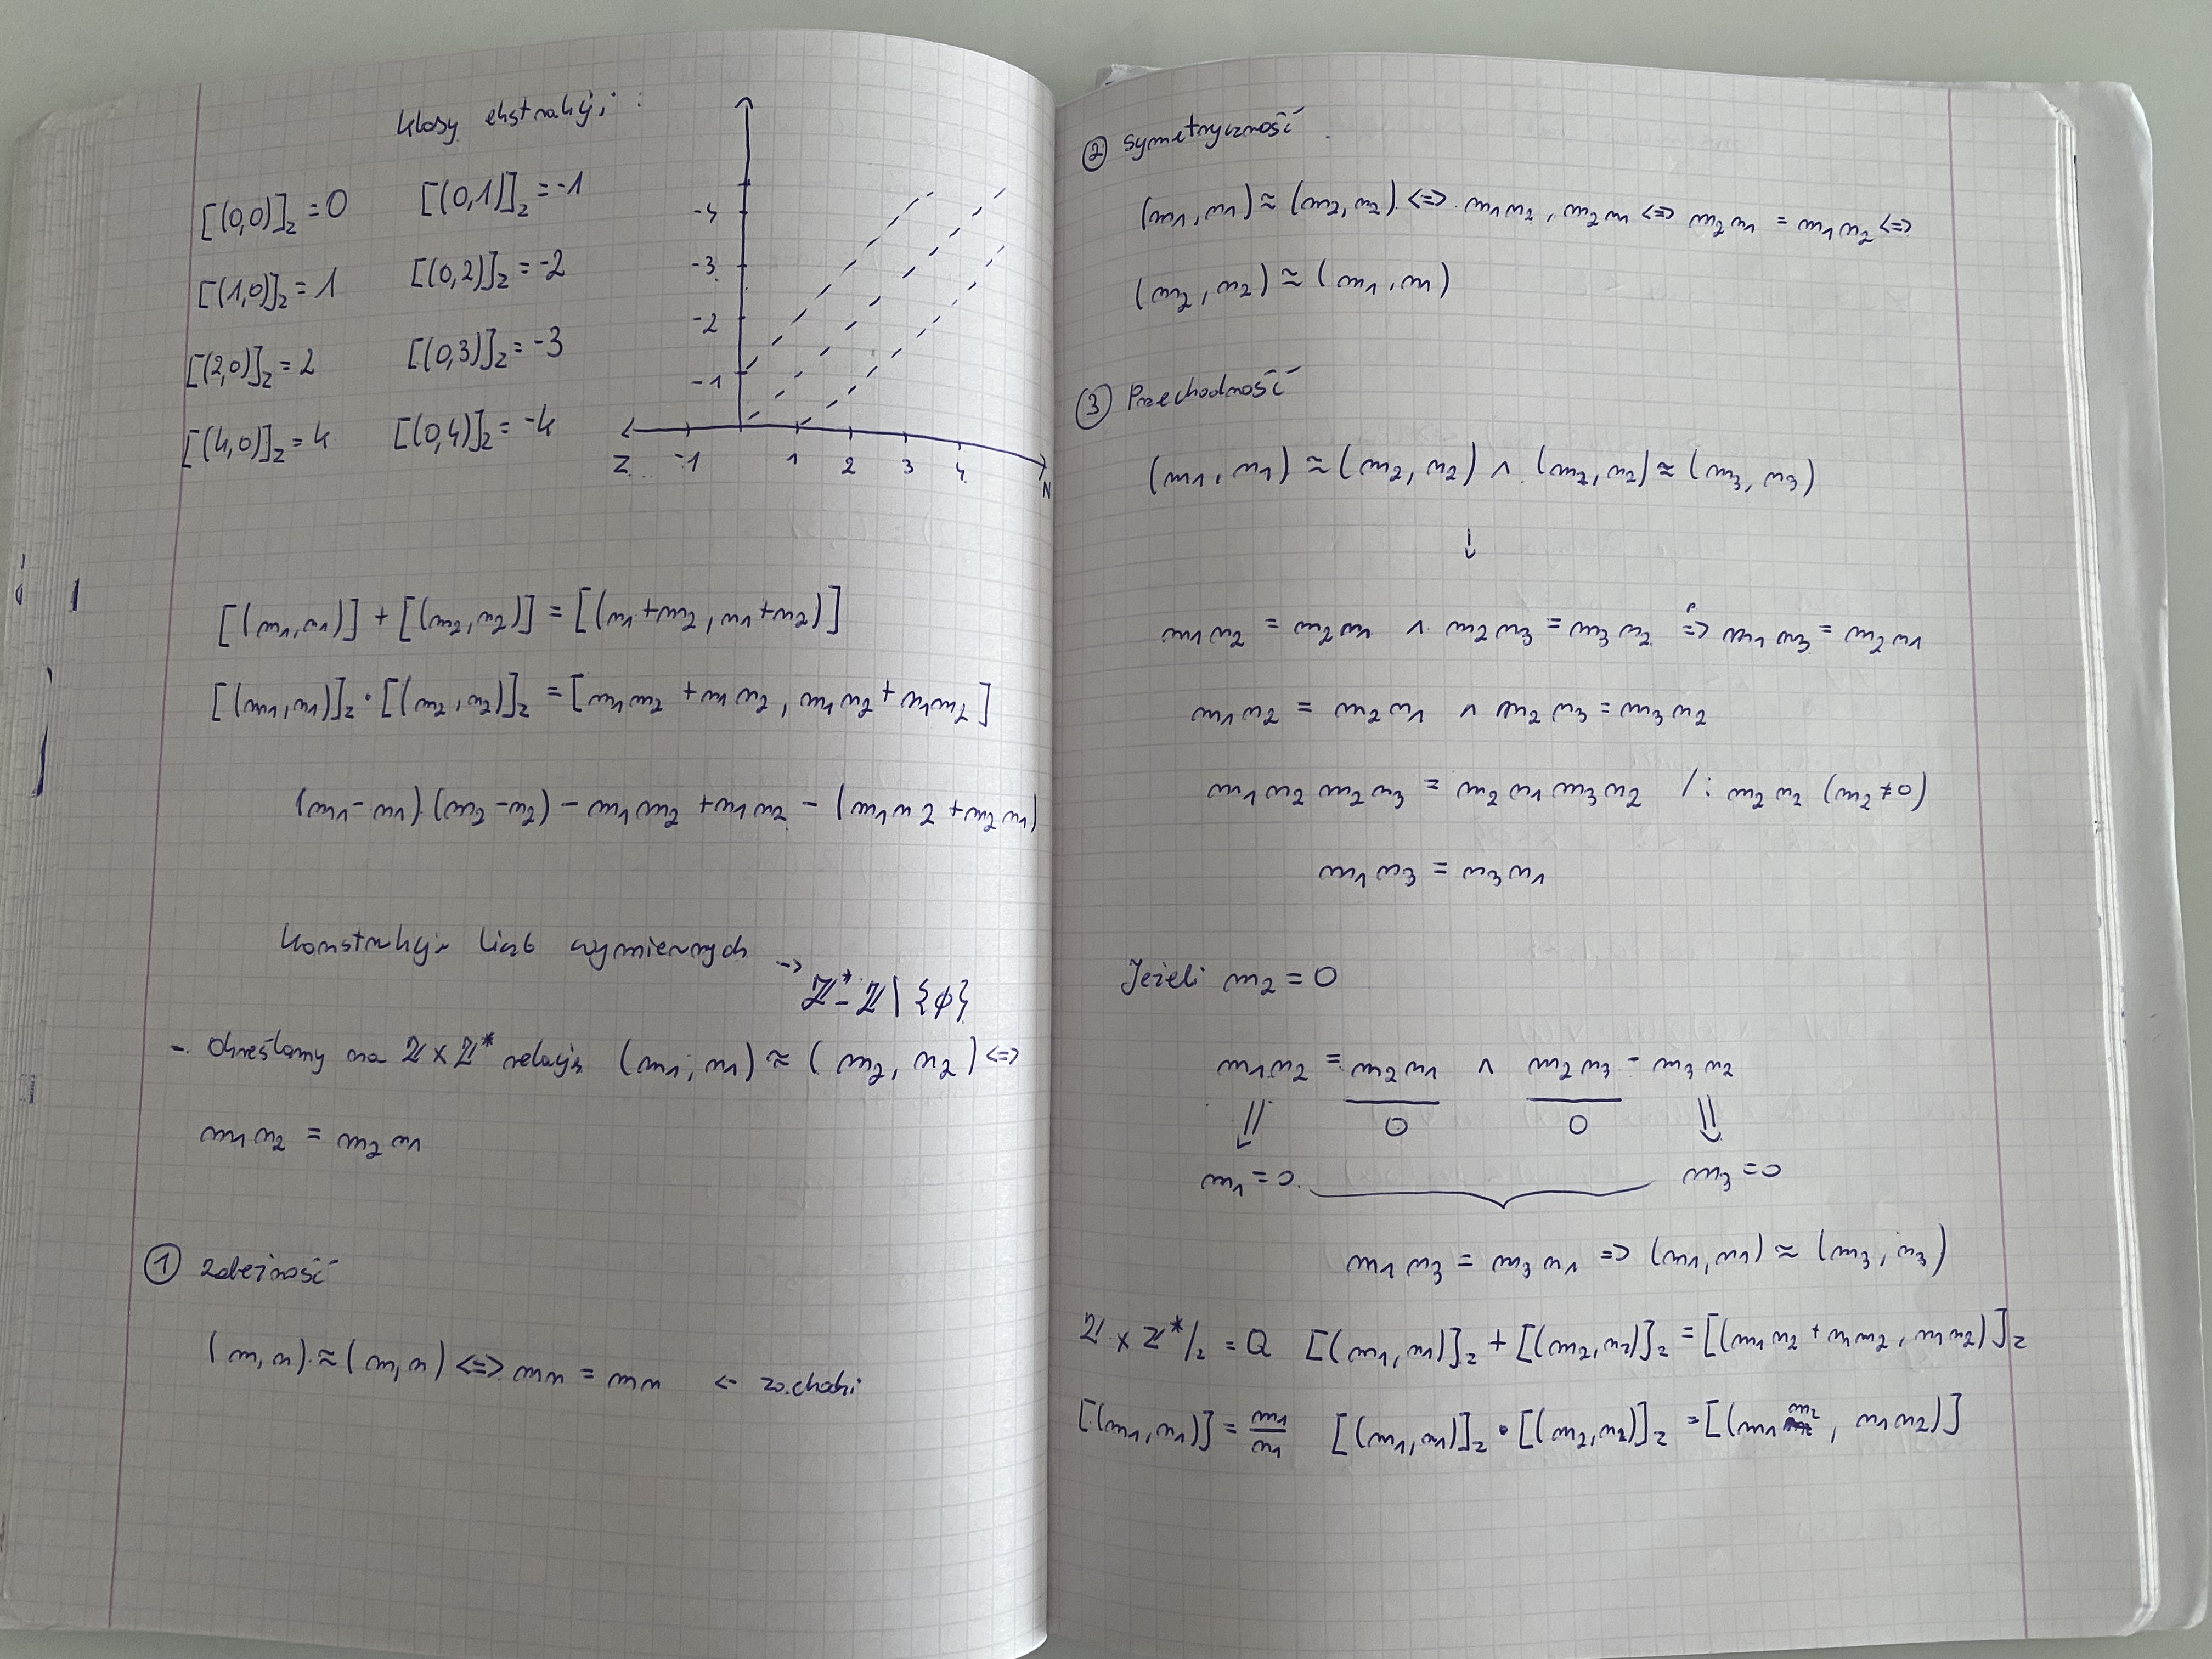 Klasy abstrakcji:
[(0,0)]₂ = 0 [(0,1)]₂ = -1
[(1,0)]₂ = 1 [(0,2)]₂ = -2
[(2,0)]₂ = 2 [(0,3)]₂ = -3
[(4,0)]₂ = 4 [(0,4)]₂ = -4
-4
-3
-2
-1
Z -1 1 2 3 4 N
[(m₁,n₁)] + [(m₂,n₂)] = [(m₁+m₂, n₁+n₂)]
[(m₁,n₁)]₂ · [(m₂,n₂)]₂ = [m₁m₂ + n₁n₂, m₁n₂ + n₁m₂]
(m₁-n₁)(m₂-n₂) - m₁m₂ + n₁n₂ - (m₁n2 + m₂n₁)
Konstrukcja liczb wymiernych ->
ℤ* = ℤ \ {φ}
- Określamy na ℤ × ℤ* relację (m₁,n₁) ≈ (m₂,n₂) <=>
m₁n₂ = m₂n₁
① zwrotność
(m,n) ≈ (m,n) <=> mn = mn <- zachodzi
② Symetryczność
(m₁,n₁) ≈ (m₂,n₂) <=> m₁n₂ = m₂n₁ <=> m₂n₁ = m₁n₂ <=>
(m₂,n₂) ≈ (m₁,n₁)
③ Przechodniość
(m₁,n₁) ≈ (m₂,n₂) ∧ (m₂,n₂) ≈ (m₃,n₃)
m₁n₂ = m₂n₁ ∧ m₂n₃ = m₃n₂ => m₁n₃ = m₃n₁
m₁n₂ = m₂n₁ ∧ m₂n₃ = m₃n₂
m₁n₂m₂n₃ = m₂n₁m₃n₂ /: m₂n₂ (m₂≠0)
m₁n₃ = m₃n₁
Jeżeli m₂ = 0
m₁n₂ = m₂n₁ ∧ m₂n₃ = m₃n₂
0 0
m₁ = 0 m₃ = 0
m₁n₃ = m₃n₁ => (m₁,n₁) ≈ (m₃,n₃)
ℤ × ℤ*/₂ = Q [(m₁,n₁)]₂ + [(m₂,n₂)]₂ = [(m₁n₂ + n₁m₂, n₁n₂)]₂
[(m₁,n₁)] = m₁/n₁ [(m₁,n₁)]₂ · [(m₂,n₂)]₂ = [(m₁m₂, n₁n₂)]